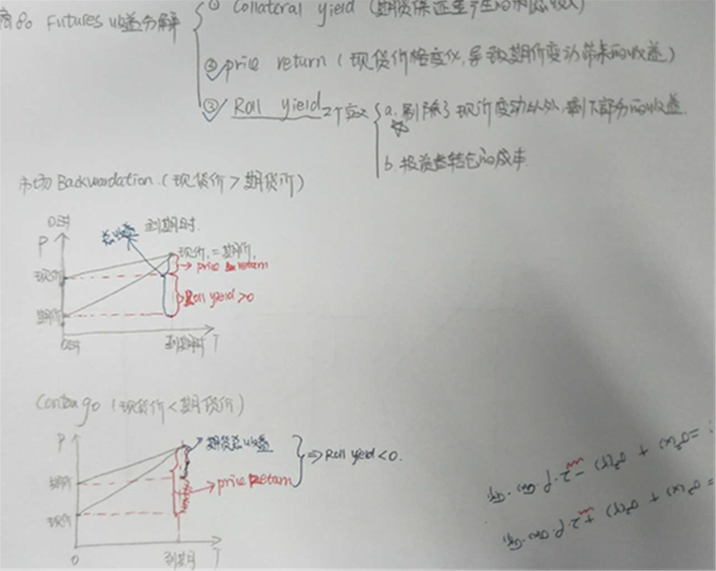 商品 Futures 收益分解
① Collateral yield (期货保证金产生的利息收入)
② price return (现货价格变化,导致期价变动带来的收益)
③ Roll yield 2个定义
a. 剔除了现价变动以外,剩下部分的收益.
b. 投资者转仓的成本
市场 Backwardation (现货价 > 期货价)
0时
到期时
P
总收益
现价 = 期价
price return
现价
Roll yield > 0
期价
0时
到期时 T
Contango (现货价 < 期货价)
P
期货总收益
⇒ Roll yield < 0.
期价
price Return
现价
0
到期日 T